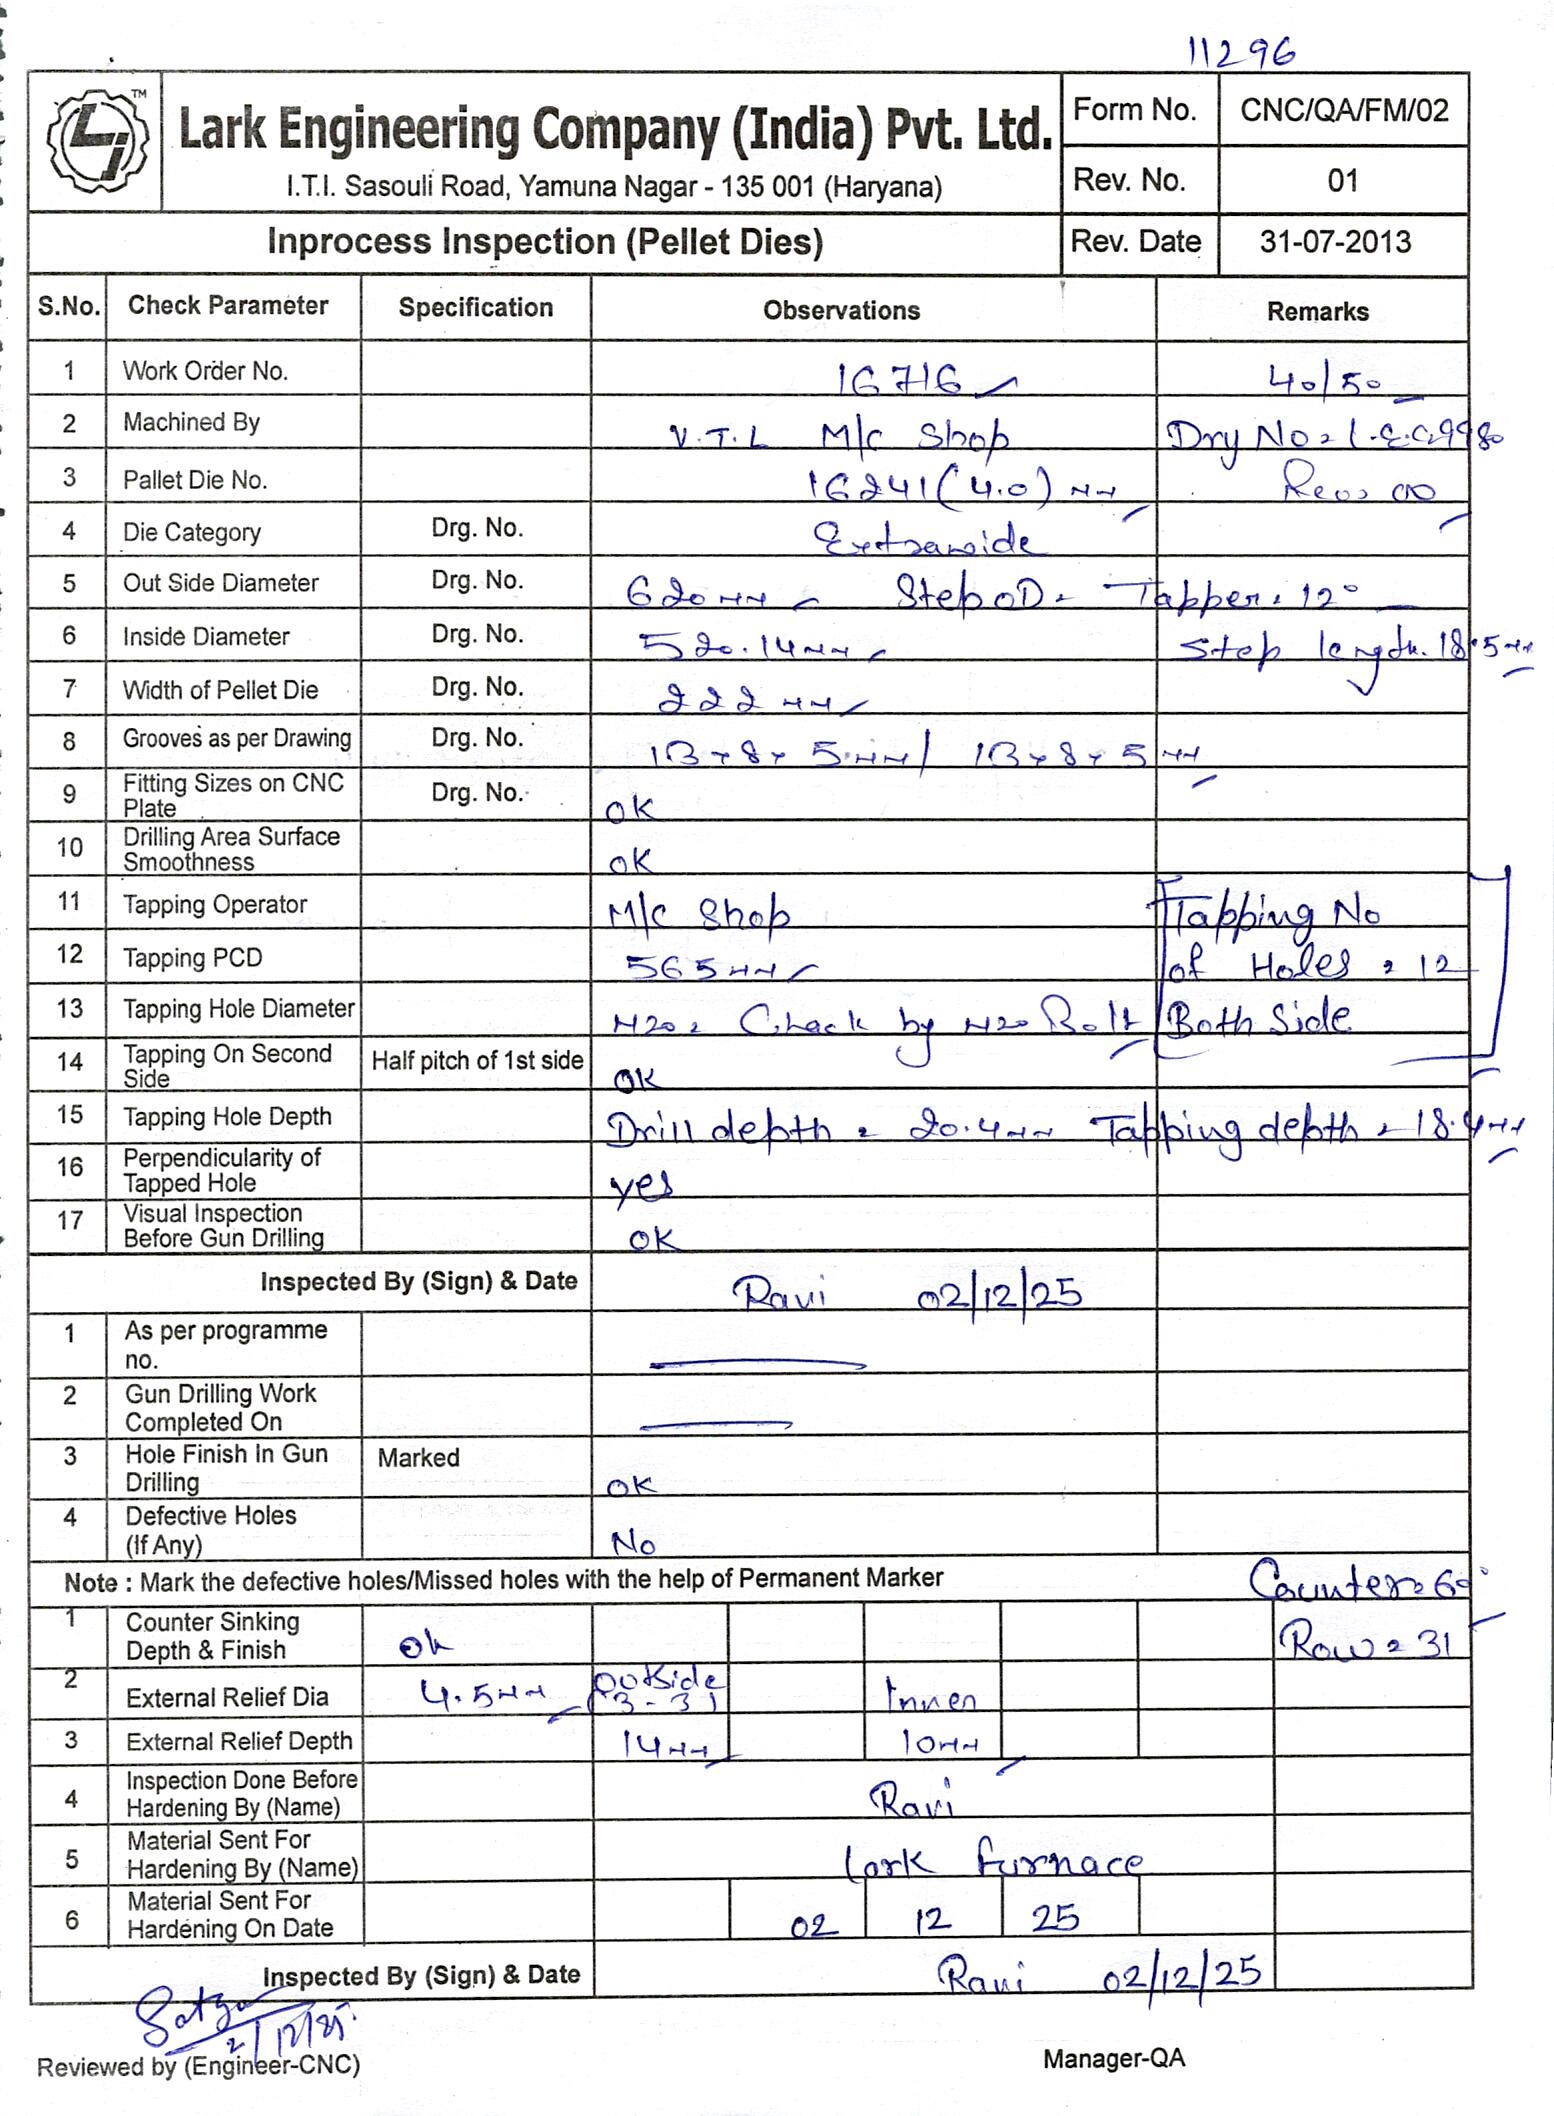 11296
TM
Lark Engineering Company (India) Pvt. Ltd.
I.T.I. Sasouli Road, Yamuna Nagar - 135 001 (Haryana)
Form No. CNC/QA/FM/02
Rev. No. 01
Inprocess Inspection (Pellet Dies) Rev. Date 31-07-2013
S.No. Check Parameter Specification Observations Remarks
1 Work Order No. 16716 40/50
2 Machined By V.T.L M/c Shop Dry No = L.E.C.9980
3 Pallet Die No. 16241 (4.0) mm Rev= 00
4 Die Category Drg. No. Extrawide
5 Out Side Diameter Drg. No. 620mm Step OD - Tapper = 12°
6 Inside Diameter Drg. No. 520.14mm Step length. 18.5mm
7 Width of Pellet Die Drg. No. 222 mm
8 Grooves as per Drawing Drg. No. 13 x 8 x 5mm / 13 x 8 x 5 mm
9 Fitting Sizes on CNC Plate Drg. No. OK
10 Drilling Area Surface Smoothness OK
11 Tapping Operator M/c Shop Tapping No
12 Tapping PCD 565mm of Holes = 12
13 Tapping Hole Diameter M20 = Check by M20 Bolt Both Side
14 Tapping On Second Side Half pitch of 1st side OK
15 Tapping Hole Depth Drill depth = 20.4mm Tapping depth = 18.4mm
16 Perpendicularity of Tapped Hole yes
17 Visual Inspection Before Gun Drilling OK
Inspected By (Sign) & Date Ravi 02/12/25
1 As per programme no.
2 Gun Drilling Work Completed On
3 Hole Finish In Gun Drilling Marked OK
4 Defective Holes (If Any) No
Note : Mark the defective holes/Missed holes with the help of Permanent Marker Counter = 60°
1 Counter Sinking Depth & Finish Ok Row = 31
2 External Relief Dia 4.5mm Outside (3-3) Inner
3 External Relief Depth 14mm 10mm
4 Inspection Done Before Hardening By (Name) Ravi
5 Material Sent For Hardening By (Name) Lark furnace
6 Material Sent For Hardening On Date 02 12 25
Inspected By (Sign) & Date Ravi 02/12/25
2/12/25
Reviewed by (Engineer-CNC) Manager-QA